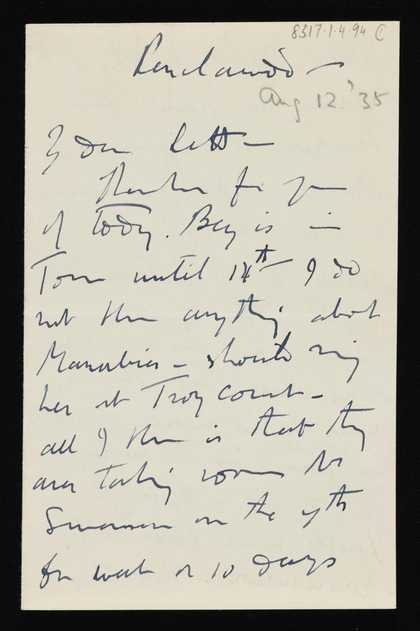 8317.1.4.94
Aug 12. '35
My dear
Thanks for yours
of Today. Bey is in
Town until 14th I do
not know anything about
– should ring
her at Troy Court –
all I know is that they
are taking rooms
on the 7th
for week or 10 days